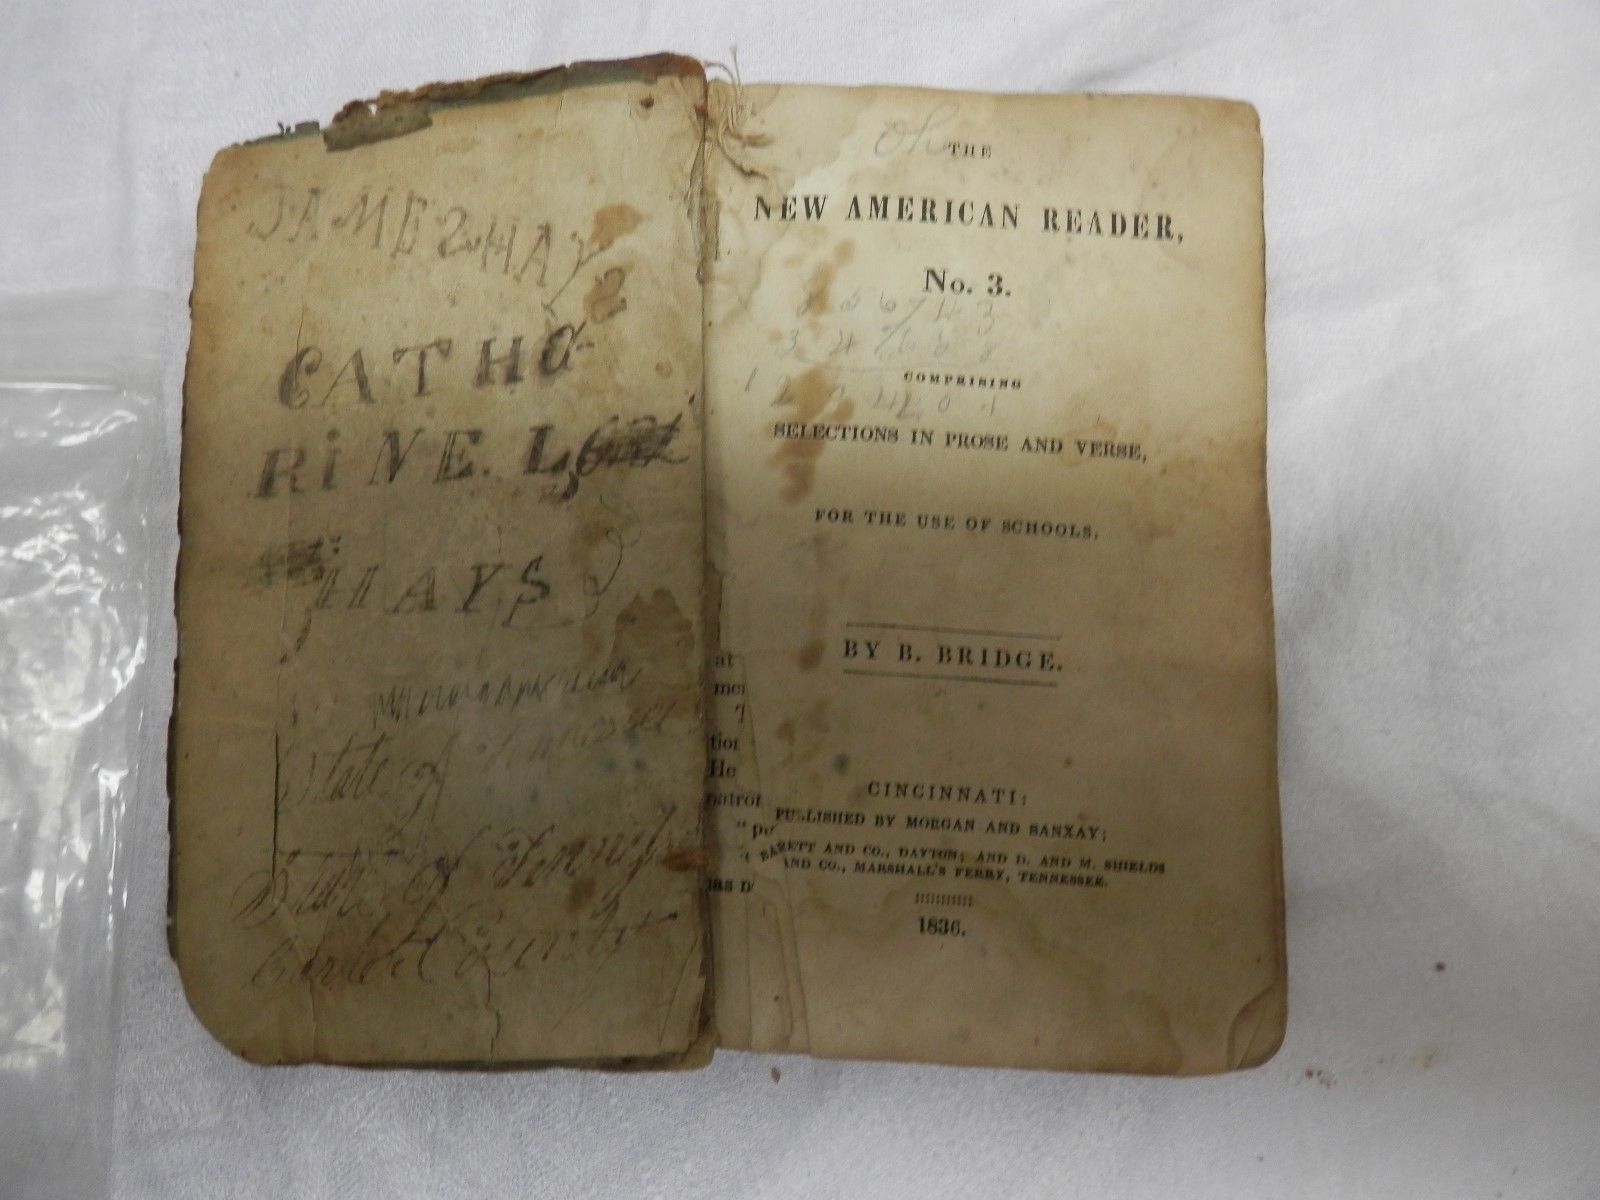 JAMES HAYS
CATHO-
RINE. L
HAYS
State of Tennessee
State of
County
THE
NEW AMERICAN READER,
No. 3.
COMPRISING
SELECTIONS IN PROSE AND VERSE,
FOR THE USE OF SCHOOLS,
BY B. BRIDGE.
CINCINNATI:
PUBLISHED BY MORGAN AND SANXAY;
BARETT AND CO., DAYTON; AND D. AND M. SHIELDS
AND CO., MARSHALL'S FERRY, TENNESSEE.
1836.